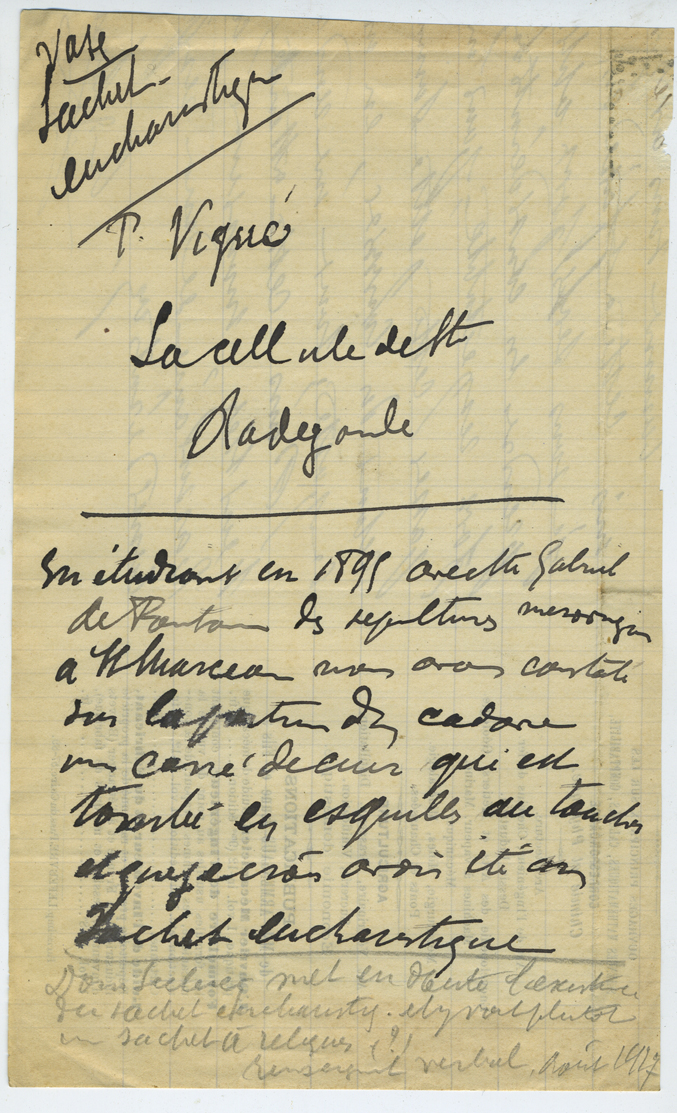 Vase
Sachet
eucharistique
P. Vigué
La cellule de Ste
Radegonde
En étudiant en 1895 avec Mr Gabriel
de des sépultures mérovingien
à St Marceau nous avons constaté
sur la poitrine d'un cadavre
un carré de cuir qui est
tombé en esquilles au toucher
et que je crois avoir été un
Sachet eucharistique
Dom Leclercq met en doute l'existence
du sachet eucharistiq. et y voit plutôt
un sachet à reliques (?)
verbal. Août 1917